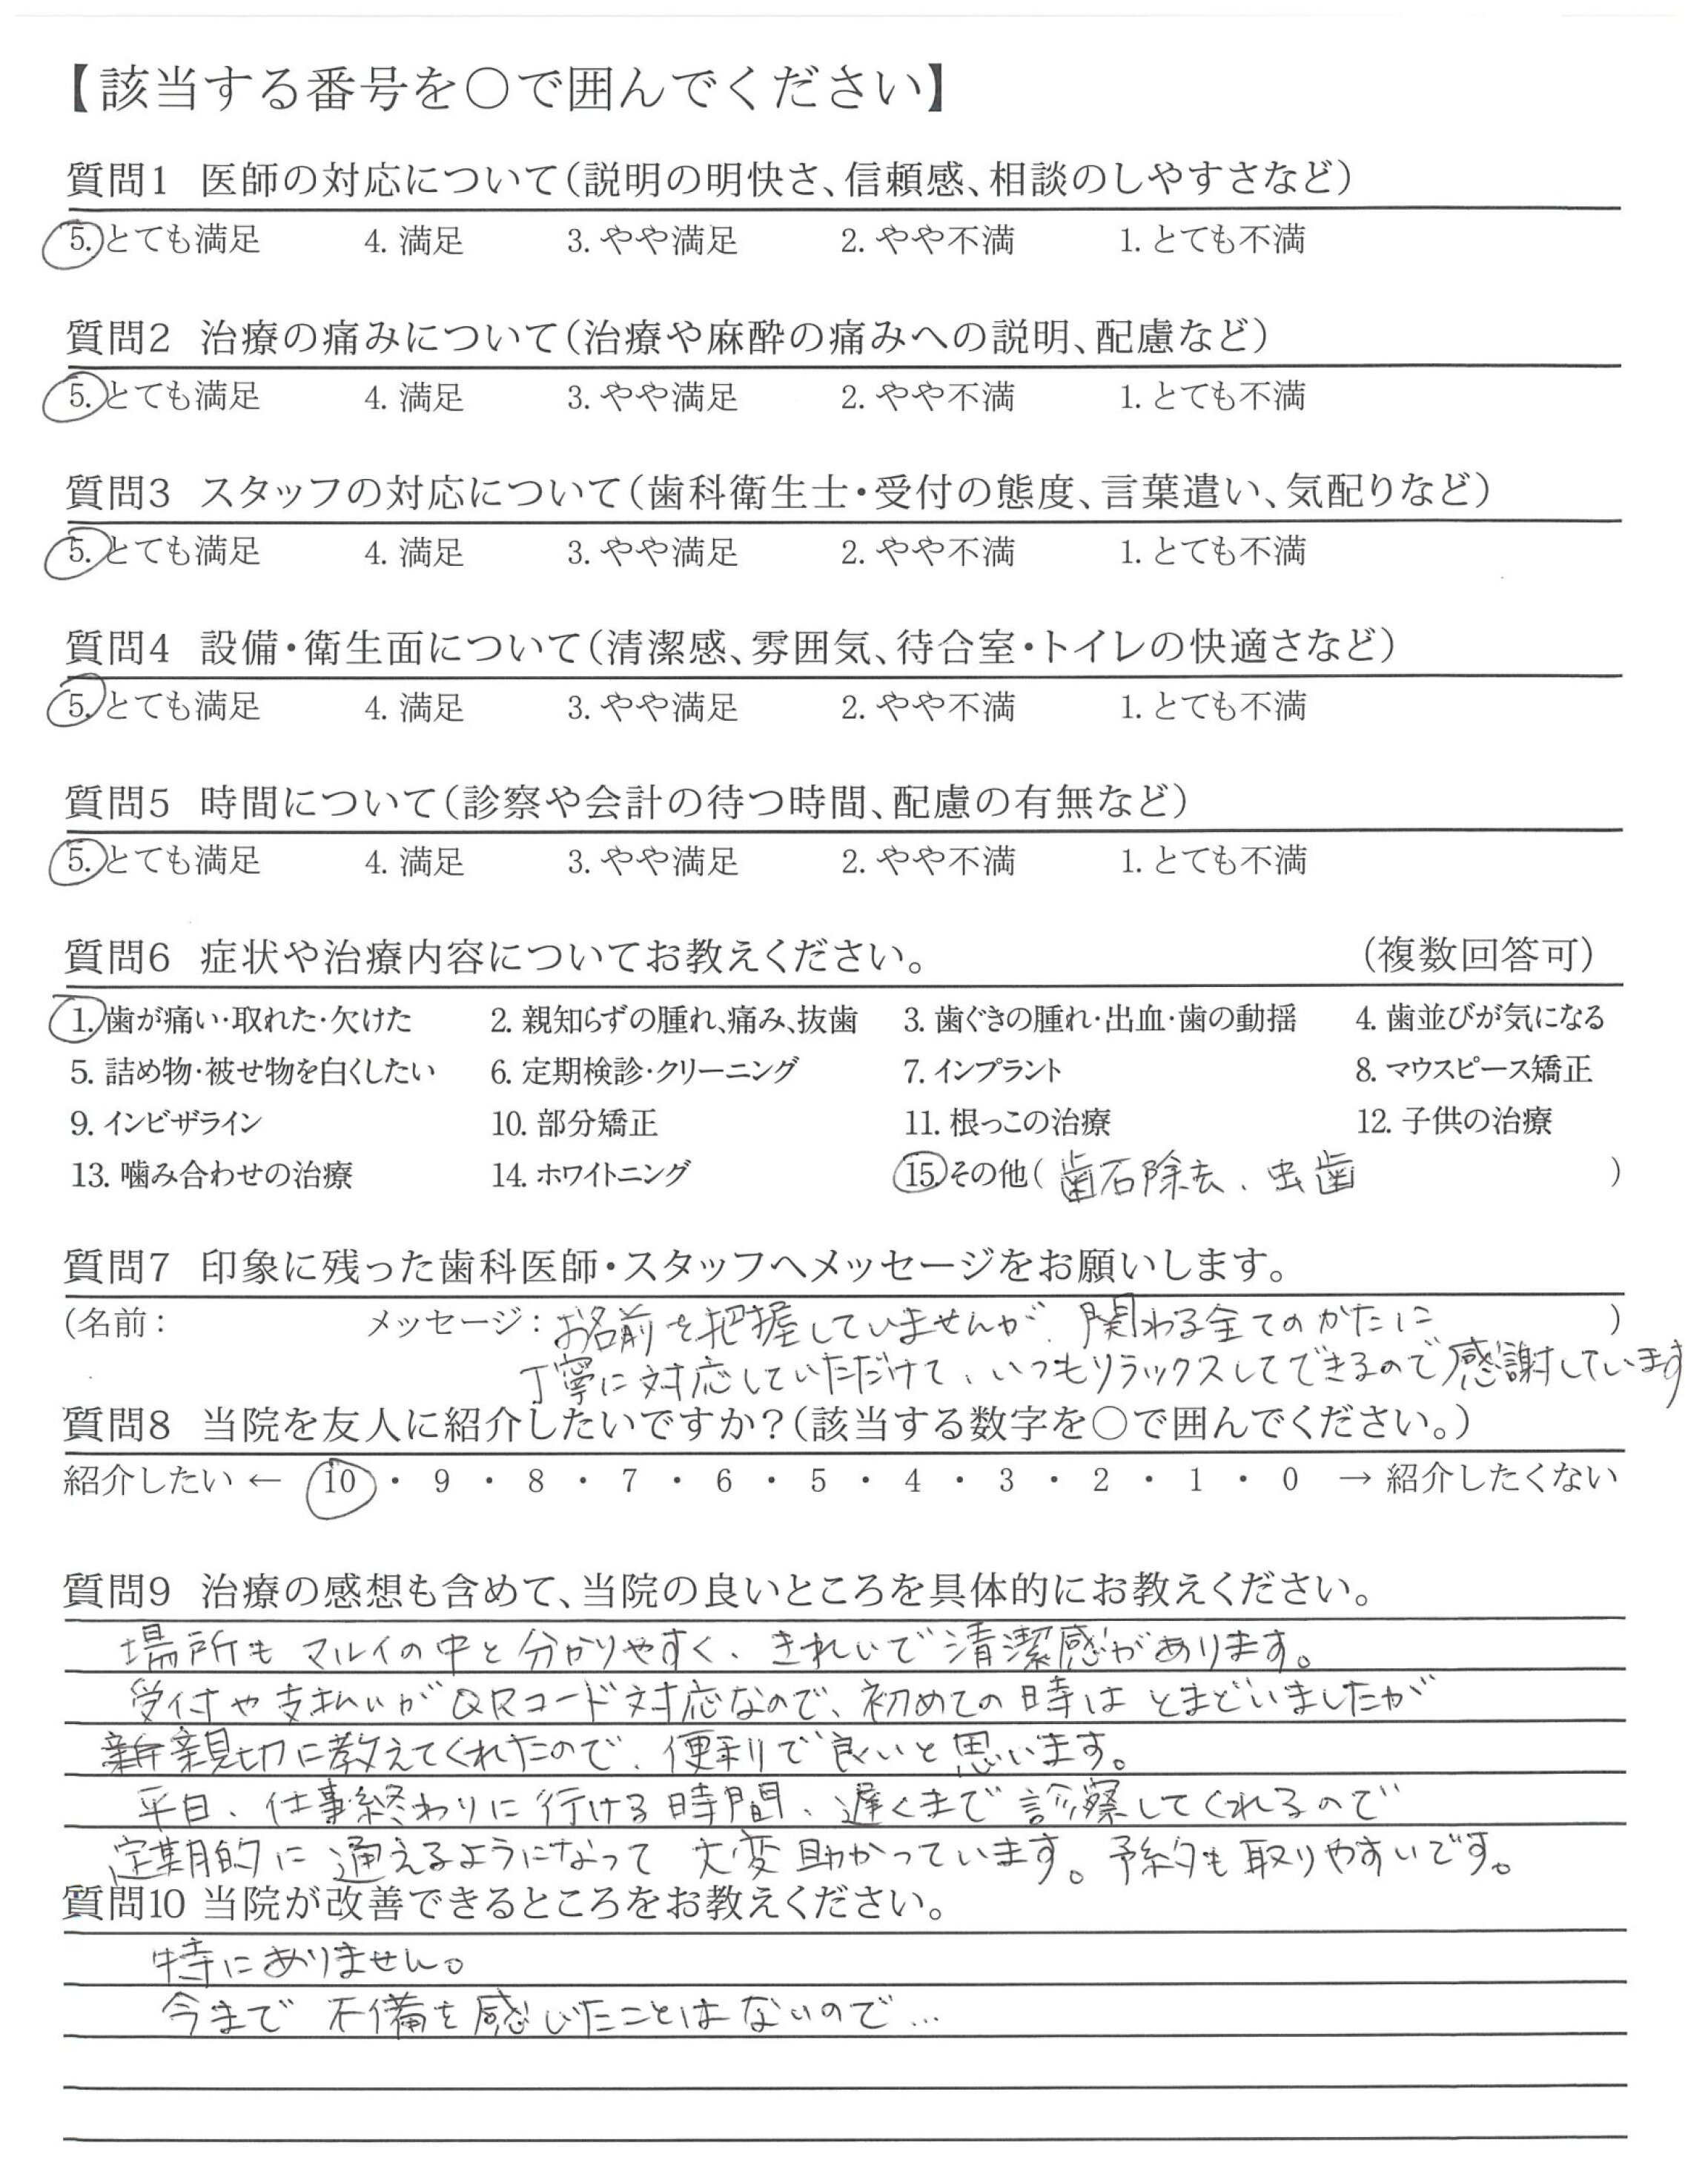 【該当する番号を○で囲んでください】
質問1 医師の対応について(説明の明快さ、信頼感、相談のしやすさなど)
5. とても満足 4. 満足 3. やや満足 2. やや不満 1. とても不満
質問2 治療の痛みについて(治療や麻酔の痛みへの説明、配慮など)
5. とても満足 4. 満足 3. やや満足 2. やや不満 1. とても不満
質問3 スタッフの対応について(歯科衛生士・受付の態度、言葉遣い、気配りなど)
5. とても満足 4. 満足 3. やや満足 2. やや不満 1. とても不満
質問4 設備・衛生面について(清潔感、雰囲気、待合室・トイレの快適さなど)
5. とても満足 4. 満足 3. やや満足 2. やや不満 1. とても不満
質問5 時間について(診察や会計の待つ時間、配慮の有無など)
5. とても満足 4. 満足 3. やや満足 2. やや不満 1. とても不満
質問6 症状や治療内容についてお教えください。 (複数回答可)
1. 歯が痛い・取れた・欠けた 2. 親知らずの腫れ、痛み、抜歯 3. 歯ぐきの腫れ・出血・歯の動揺 4. 歯並びが気になる
5. 詰め物・被せ物を白くしたい 6. 定期検診・クリーニング 7. インプラント 8. マウスピース矯正
9. インビザライン 10. 部分矯正 11. 根っこの治療 12. 子供の治療
13. 噛み合わせの治療 14. ホワイトニング 15. その他( 歯石除去、虫歯 )
質問7 印象に残った歯科医師・スタッフへメッセージをお願いします。
(名前: メッセージ: お名前を把握していませんが、関わる全てのかたに )
丁寧に対応していただけて、いつもリラックスしてできるので感謝しています
質問8 当院を友人に紹介したいですか?(該当する数字を○で囲んでください。)
紹介したい ← 10 ・ 9 ・ 8 ・ 7 ・ 6 ・ 5 ・ 4 ・ 3 ・ 2 ・ 1 ・ 0 → 紹介したくない
質問9 治療の感想も含めて、当院の良いところを具体的にお教えください。
場所もマルイの中と分かりやすく、きれいで清潔感があります。
受付や支払いがQRコード対応なので、初めての時はとまどいましたが
親切に教えてくれたので、便利で良いと思います。
平日、仕事終わりに行ける時間、遅くまで診察してくれるので
定期的に通えるようになって大変助かっています。予約も取りやすいです。
質問10 当院が改善できるところをお教えください。
特にありません。
今まで不備を感じたことはないので…